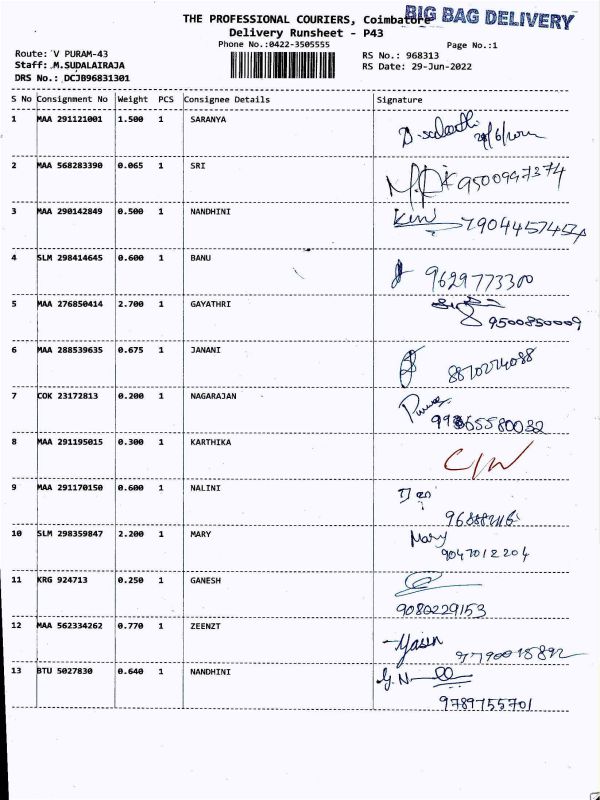 BIG BAG DELIVERY
THE PROFESSIONAL COURIERS, Coimbatore
Delivery Runsheet - P43
Phone No.:0422-3505555
Page No.:1
Route: V PURAM-43
RS No.: 968313
Staff: M.SUDALAIRAJA
RS Date: 29-Jun-2022
DRS No.: DCJB96831301
S No Consignment No Weight PCS Consignee Details Signature
1 MAA 291121001 1.500 1 SARANYA
2 MAA 568283390 0.065 1 SRI 9500997374
3 MAA 290142849 0.500 1 NANDHINI
4 SLM 298414645 0.600 1 BANU 9629773300
5 MAA 276850414 2.700 1 GAYATHRI
9500850009
6 MAA 288539635 0.675 1 JANANI 8870274088
7 COK 23172813 0.200 1 NAGARAJAN
8 MAA 291195015 0.300 1 KARTHIKA
9 MAA 291170150 0.600 1 NALINI
10 SLM 298359847 2.200 1 MARY Mary
9047012204
11 KRG 924713 0.250 1 GANESH
9080229153
12 MAA 562334262 0.770 1 ZEENZT Yasin
13 BTU 5027830 0.640 1 NANDHINI G.N
9789755701